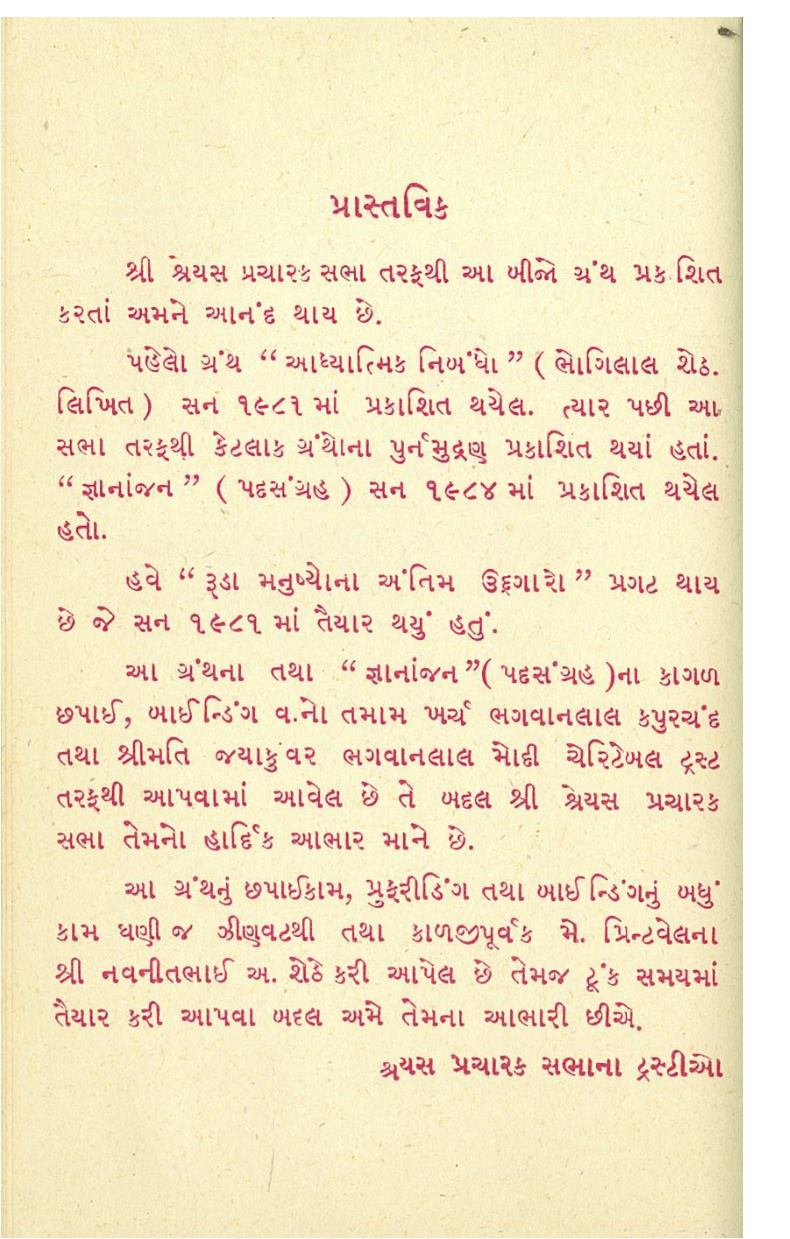 પ્રાસ્તવિક
શ્રી શ્રેયસ પ્રચારક સભા તરફથી આ બીજો ગ્રંથ પ્રક શિત
કરતાં અમને આનંદ થાય છે.
પહેલો ગ્રંથ “ આધ્યાત્મિક નિબંધો ” ( ભોગિલાલ શેઠ.
લિખિત ) સન ૧૯૮૧ માં પ્રકાશિત થયેલ. ત્યાર પછી આ
સભા તરફથી કેટલાક ગ્રંથોના પુર્નમુદ્રણ પ્રકાશિત થયાં હતાં.
“ જ્ઞાનાંજન ” ( પદસંગ્રહ ) સન ૧૯૮૪ માં પ્રકાશિત થયેલ
હતો.
હવે “ રૂડા મનુષ્યોના અંતિમ ઉદ્દગારો ” પ્રગટ થાય
છે જે સન ૧૯૮૧ માં તૈયાર થયું હતું.
આ ગ્રંથના તથા “ જ્ઞાનાંજન ”( પદસંગ્રહ )ના કાગળ
છપાઈ, બાઈન્ડિંગ વ.નો તમામ ખર્ચ ભગવાનલાલ કપુરચંદ
તથા શ્રીમતિ જયાકુંવર ભગવાનલાલ મોદી ચેરિટેબલ ટ્રસ્ટ
તરફથી આપવામાં આવેલ છે તે બદલ શ્રી શ્રેયસ પ્રચારક
સભા તેમનો હાર્દિક આભાર માને છે.
આ ગ્રંથનું છપાઈકામ, પ્રુફરીડિંગ તથા બાઈન્ડિંગનું બધું
કામ ઘણી જ ઝીણવટથી તથા કાળજીપૂર્વક મે. પ્રિન્ટવેલના
શ્રી નવનીતભાઈ અ. શેઠે કરી આપેલ છે તેમજ ટૂંક સમયમાં
તૈયાર કરી આપવા બદલ અમે તેમના આભારી છીએ.
શ્રયસ પ્રચારક સભાના ટ્રસ્ટીઓ